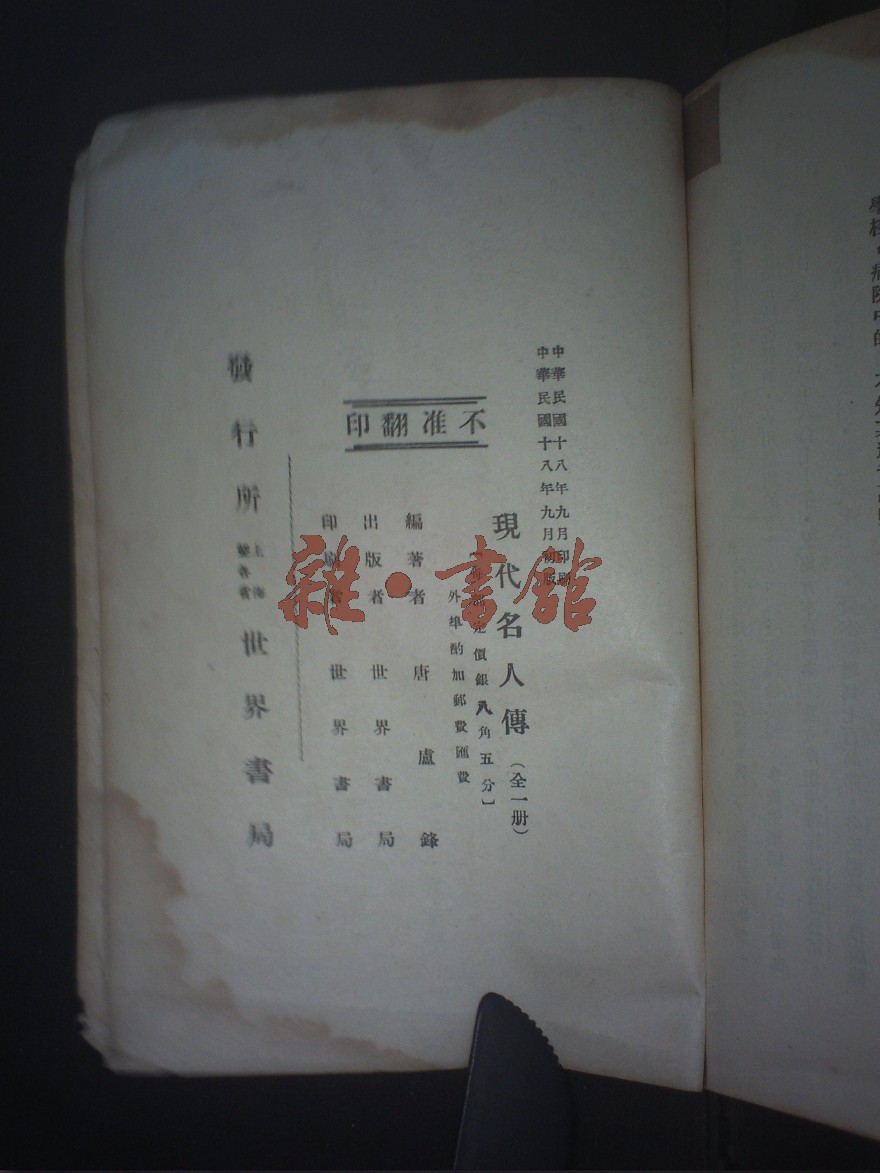 中華民國十八年九月印刷
中華民國十八年九月初版
不准翻印
現代名人傳（全一册）
定價銀八角五分］
外埠酌加郵費匯費
編著者 唐盧鋒
出版者 世界書局
印刷者 世界書局
發行所 上海 暨各省 世界書局
雜·書館
學校，病院中的